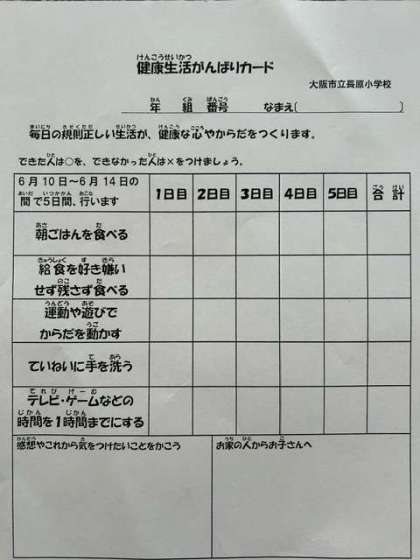 健康生活がんばりカード
大阪市立長原小学校
年 組 番号 なまえ( )
毎日の規則正しい生活が、健康な心やからだをつくります。
できた人は○を、できなかった人は×をつけましょう。
6月10日~6月14日の
間で5日間、行います
1日目 2日目 3日目 4日目 5日目 合計
朝ごはんを食べる
給食を好き嫌い
せず残さず食べる
運動や遊びで
からだを動かす
ていねいに手を洗う
テレビ・ゲームなどの
時間を1時間までにする
感想やこれから気をつけたいことをかこう
お家の人からお子さんへ